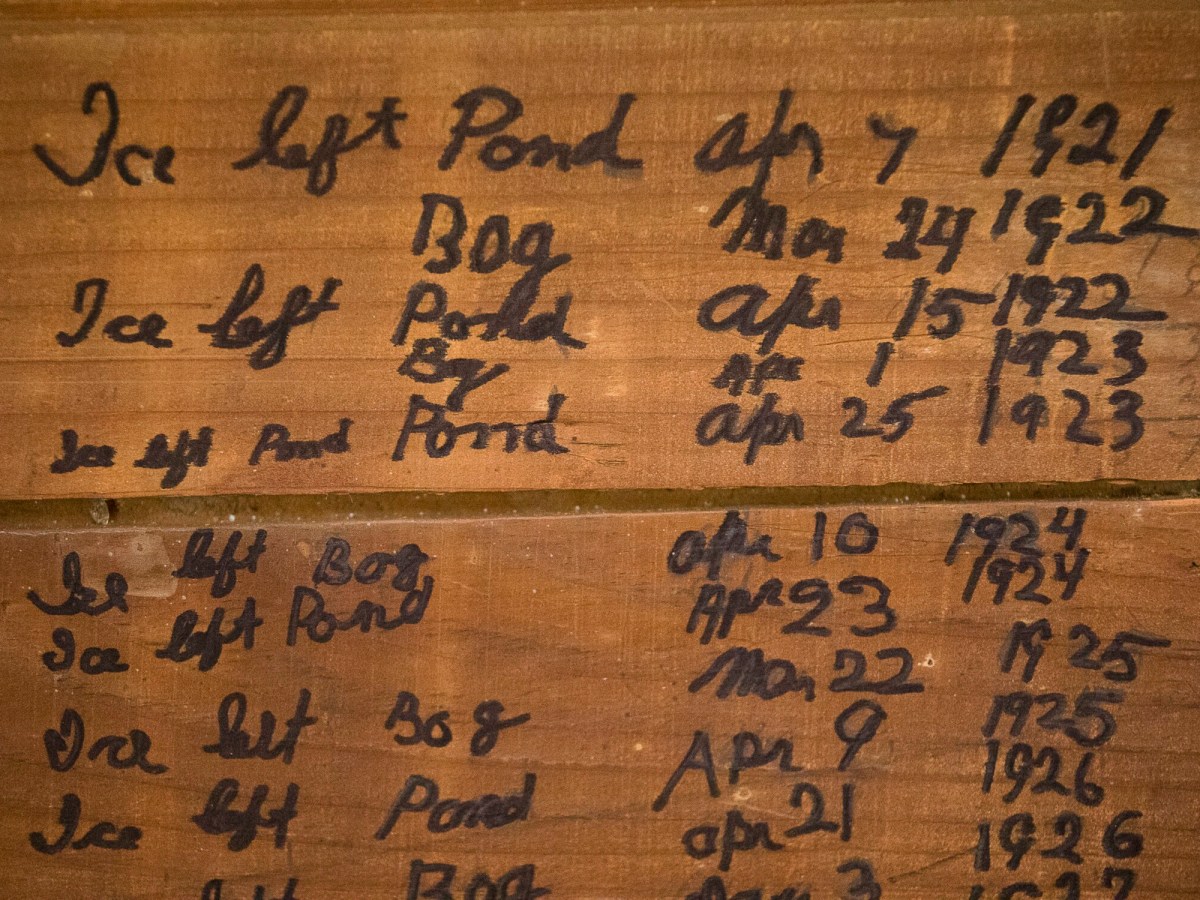 Ice left Pond apr 7 1921
Bog Mar 24 1922
Ice left Pond apr 15 1922
Bg Apr 1 1923
Ice left Pond Pond apr 25 1923
Ice left Bog apr 10 1924
Ice left Pond Apr 23 1924
Ice left Bog Mar 22 1925
Ice left Pond Apr 9 1925
left Bog apr 21 1926
1926
3 1927